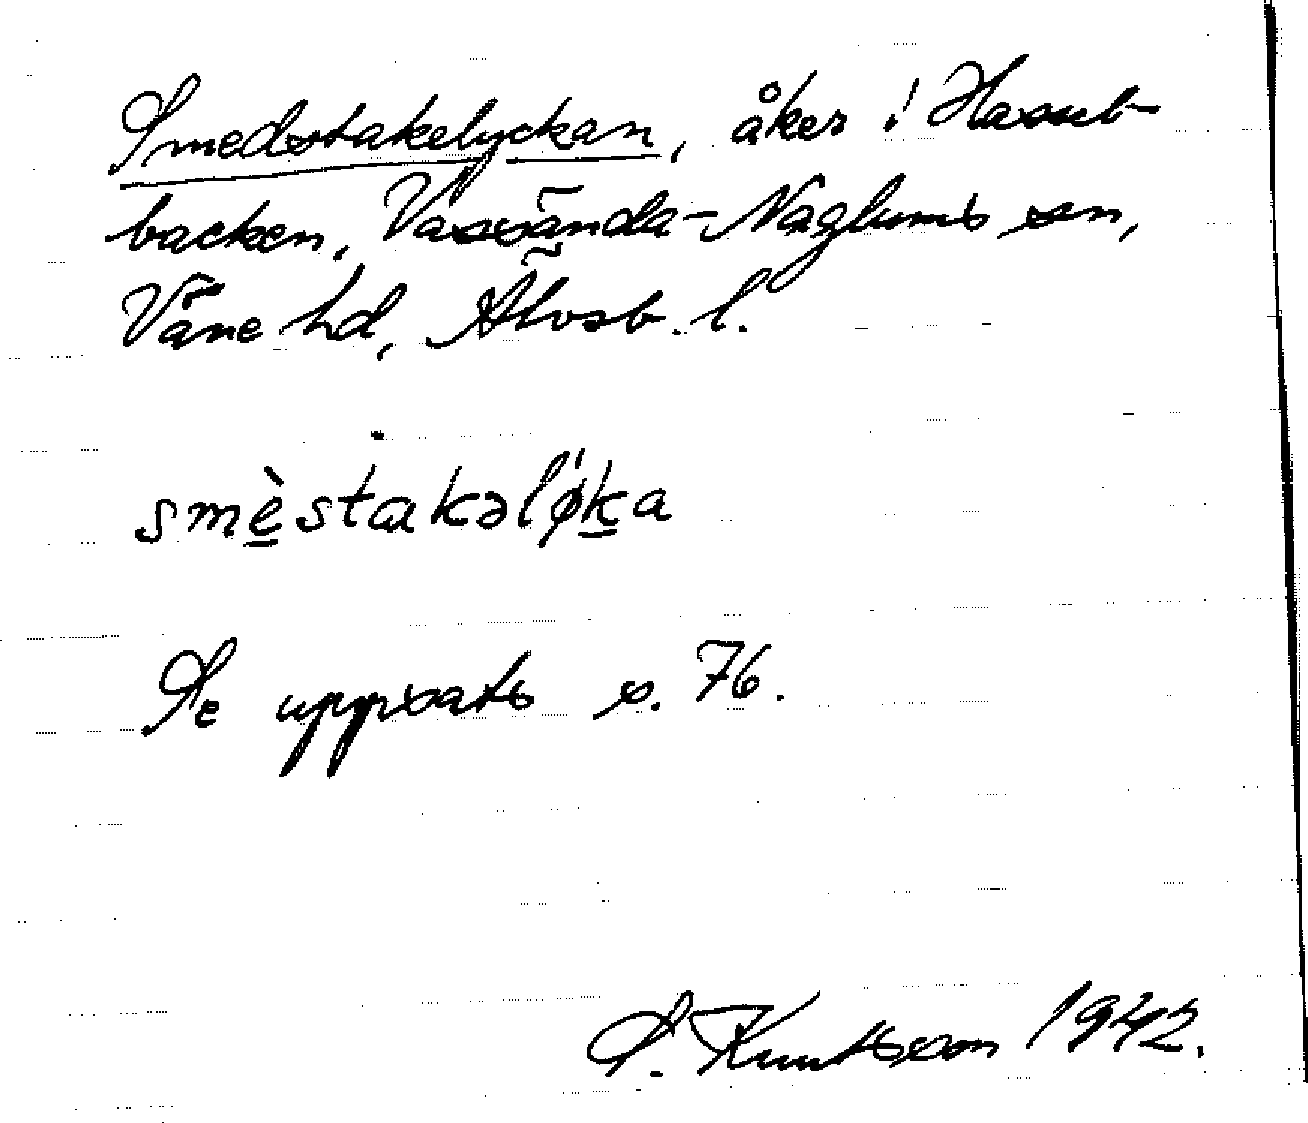 Smedstakelyckan, åker i Hasselbacken, Vassända-Naglums sn,
Väne hd, Älvsb. l.
smèstakəlǿka
Se uppsats s. 76.
S. Knutsson 1942.